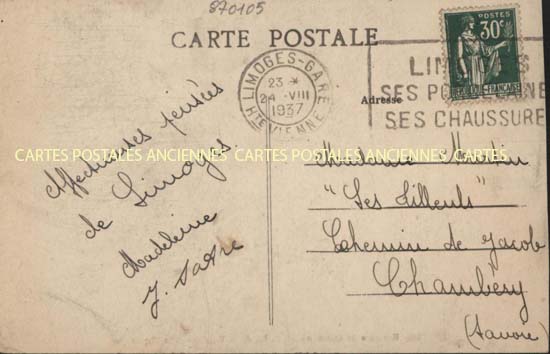 870105
CARTE POSTALE
POSTES
30c
RÉPUBLIQUE FRANÇAISE
LIMOGES-GARE
23 *
24 VIII
1937
HTE VIENNE
LIMOGES
SES PORCELAINE
SES CHAUSSURE
Adresse
CARTES POSTALES ANCIENNES CARTES POSTALES ANCIENNES CARTES
Affectueuses pensées
de Limoges
Madeleine
Madame
"Les Tilleuls"
Chemin de Jacob
Chambéry
(Savoie)